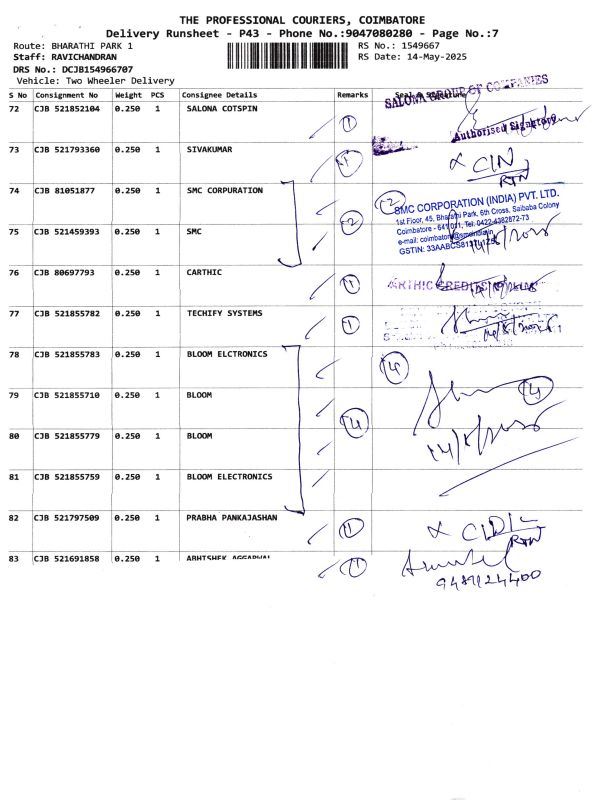 THE PROFESSIONAL COURIERS, COIMBATORE
Delivery Runsheet - P43 - Phone No.:9047080280 - Page No.:7
Route: BHARATHI PARK 1
RS No.: 1549667
Staff: RAVICHANDRAN
RS Date: 14-May-2025
DRS No.: DCJB154966707
Vehicle: Two Wheeler Delivery
S No Consignment No Weight PCS Consignee Details Remarks Seal & Signature
SALONA GROUP OF COMPANIES
72 CJB 521852104 0.250 1 SALONA COTSPIN 1
Authorised Signatory
73 CJB 521793360 0.250 1 SIVAKUMAR 1 CIN
RTN
74 CJB 81051877 0.250 1 SMC CORPURATION 2 2
SMC CORPORATION (INDIA) PVT. LTD.
1st Floor, 45, Bharathi Park, 6th Cross, Saibaba Colony
Coimbatore - 641 011, Tel: 0422-4382872-73
75 CJB 521459393 0.250 1 SMC
14/5/2025
76 CJB 80697793 0.250 1 CARTHIC 1
77 CJB 521855782 0.250 1 TECHIFY SYSTEMS 1
14/5/2025
78 CJB 521855783 0.250 1 BLOOM ELCTRONICS 4
79 CJB 521855710 0.250 1 BLOOM 4
80 CJB 521855779 0.250 1 BLOOM 4
14/5/2025
81 CJB 521855759 0.250 1 BLOOM ELECTRONICS
82 CJB 521797509 0.250 1 PRABHA PANKAJASHAN 1
RTN
83 CJB 521691858 0.250 1 ABHISHEK AGGARWAL 1
9489124400